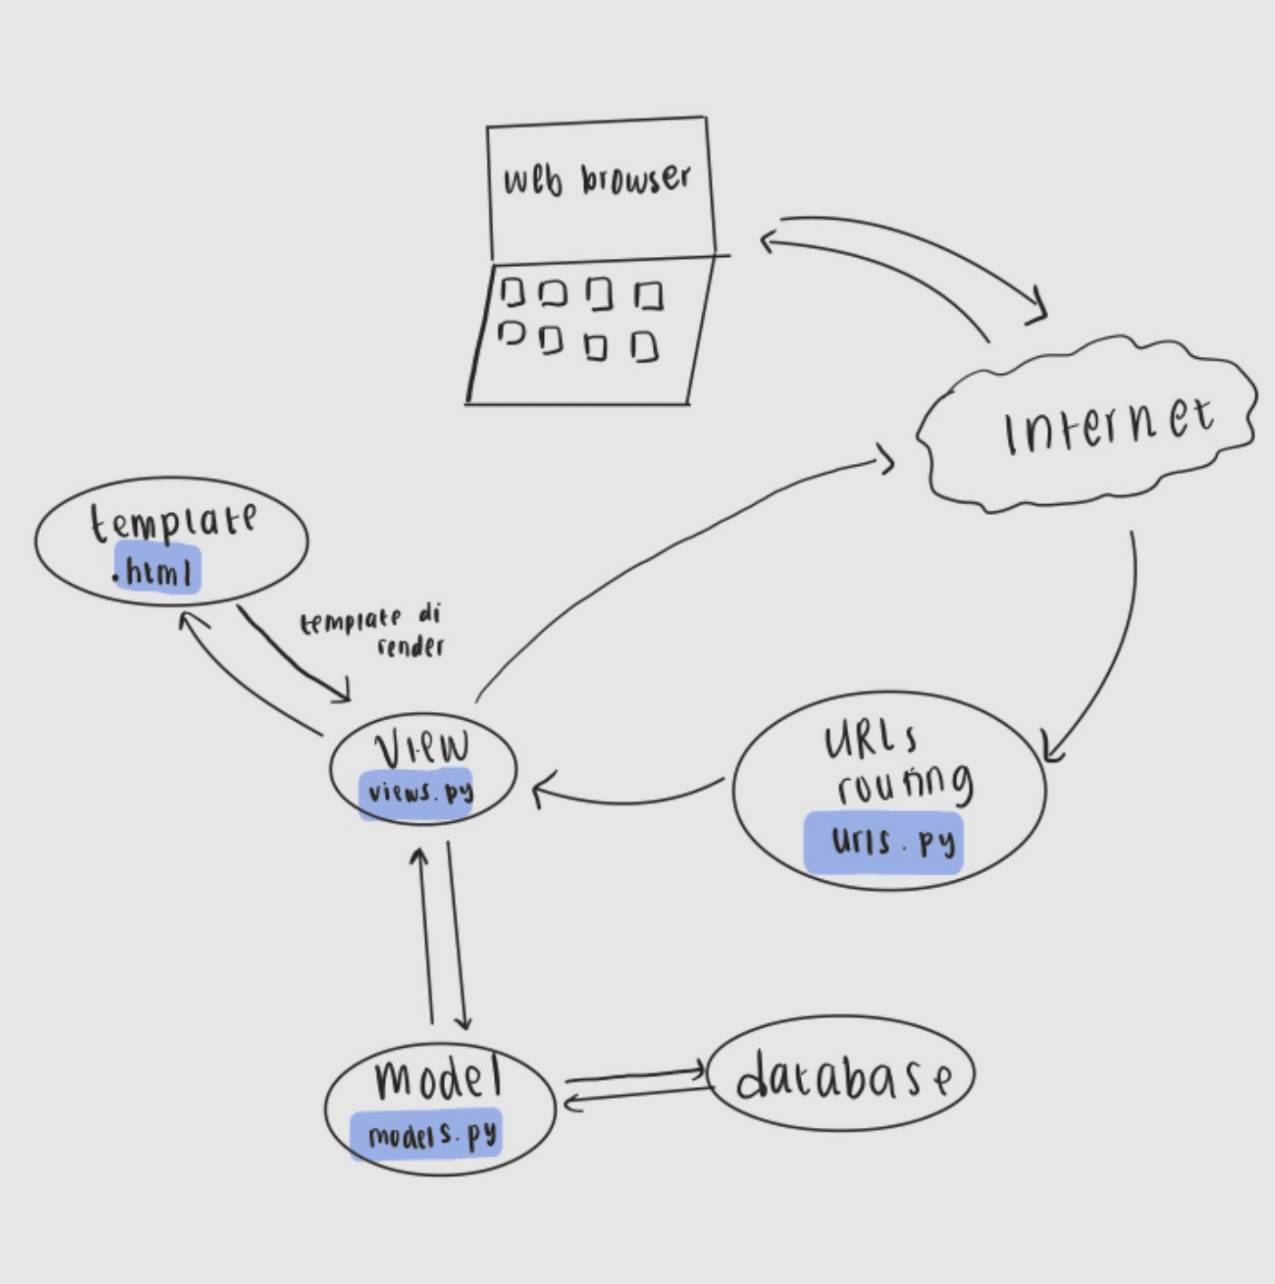 web browser
Internet
template
.html
template di
render
View
views.py
URLs
routing
urls.py
model
models.py
database